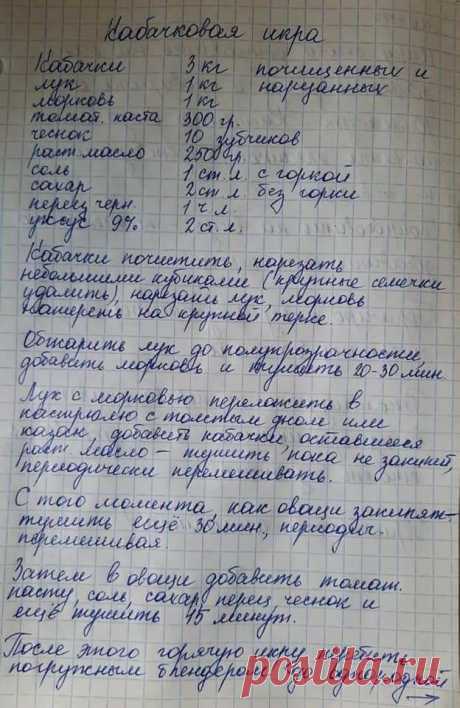 Кабачковая икра
Кабачки 3 кг почищенных и
лук 1 кг нарезанных
морковь 1 кг
томат. паста 300 гр.
чеснок 10 зубчиков
раст. масло 250 гр.
соль 1 ст. л. с горкой
сахар 2 ст. л. без горки
перец черн. 1 ч. л.
уксус 9% 2 ст. л.
Кабачки почистить, нарезать
небольшими кубиками (крупные семечки
удалить), нарезать лук, морковь
натереть на крупной терке.
Обжарить лук до полупрозрачности,
добавить морковь и тушить 20-30 мин
Лук с морковью переложить в
кастрюлю с толстым дном или
казан, добавить кабачки, оставшееся
раст. масло – тушить пока не закипит,
периодически перемешивать.
С того момента, как овощи закипят –
тушить ещё 30 мин., периодич.
перемешивая.
Затем в овощи добавить томат.
пасту, соль, сахар, перец, чеснок и
ещё тушить 15 минут.
После этого горячую икру
погружным блендером до однородной
→
postila.ru